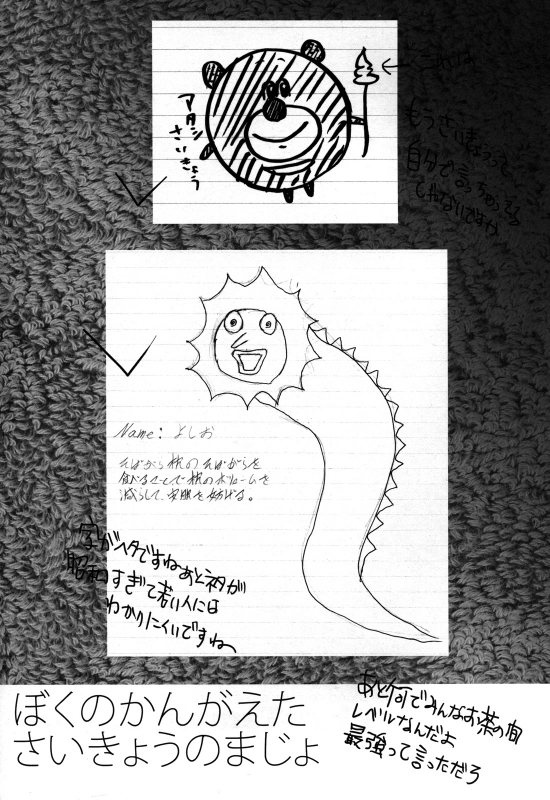 アタシ
さいきょう
これは
もうさいきょうって
自分で言っちゃってる
じゃないですか
Name: よしお
そばがら枕のそばがらを
食べることで枕のボリュームを
減らして、安眠を妨げる。
字がヘタですねあとネタが
昭和すぎて若い人には
わかりにくいですね
ぼくのかんがえた
さいきょうのまじょ
あと何でみんなお茶の間
レベルなんだよ
最強って言っただろ